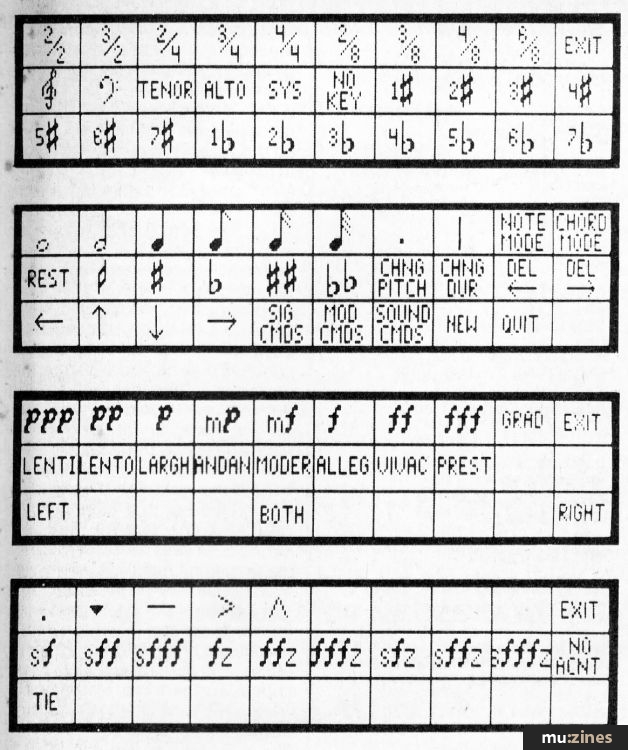 2/2 3/2 2/4 3/4 4/4 2/8 3/8 4/8 6/8 EXIT
TENOR ALTO SYS NO KEY 1♯ 2♯ 3♯ 4♯
5♯ 6♯ 7♯ 1♭ 2♭ 3♭ 4♭ 5♭ 6♭ 7♭
NOTE MODE CHORD MODE
REST ♮ ♯ ♭ ♯♯ ♭♭ CHNG PITCH CHNG DUR DEL ← DEL →
← ↑ ↓ → SIG CMDS MOD CMDS SOUND CMDS NEW QUIT
ppp pp p mp mf f ff fff GRAD EXIT
LENTI LENTO LARGH ANDAN MODER ALLEG VIVAC PREST
LEFT BOTH RIGHT
. ▼ — > ^ EXIT
sf sff sfff fz ffz fffz sfz sffz sfffz NO ACNT
TIE
mu:zines